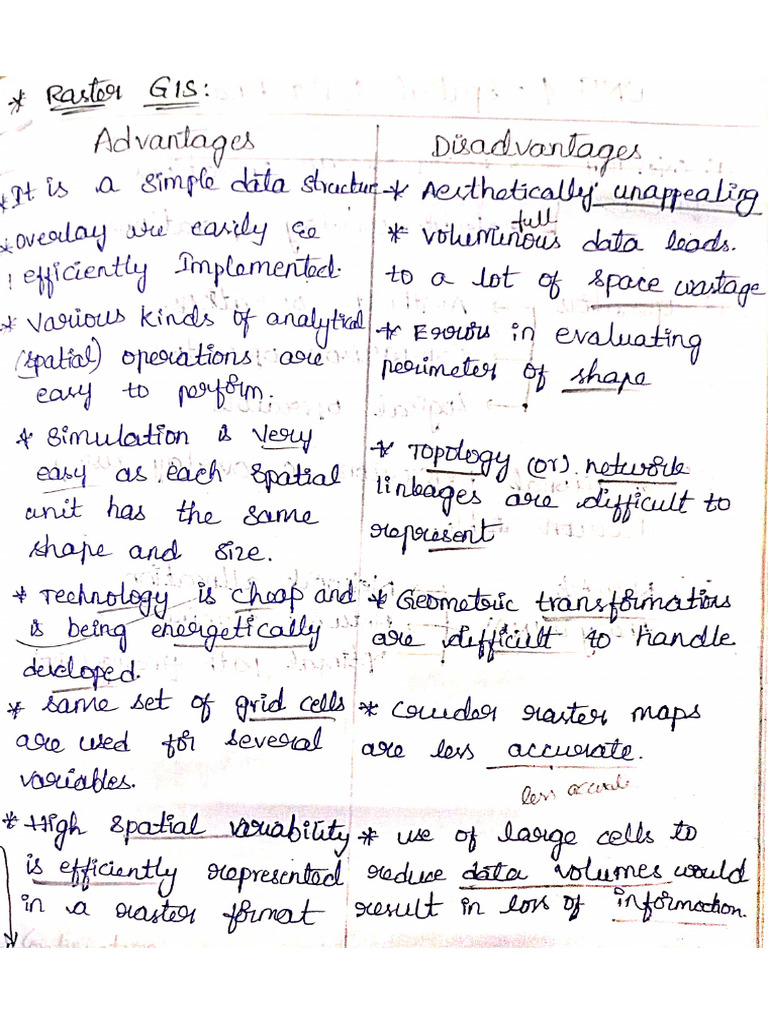 * Raster GIS:
Advantages
* It is a simple data structure
* overlay are easily &
efficiently Implemented.
* various kinds of analytical
(spatial) operations are
easy to perform.
* Simulation is very
easy as each spatial
unit has the same
shape and size.
* Technology is cheap and
is being energetically
developed.
* same set of grid cells
are used for several
variables.
* High spatial variability
is efficiently represented
in a raster format
Disadvantages
* Aesthetically unappealing
full
* Voluminous data leads.
to a lot of space wastage
* Errors in evaluating
perimeter of shape
* Topology (or) network
linkages are difficult to
represent
* Geometric transformations
are difficult to handle
* Cruder raster maps
are less accurate.
less
* use of large cells to
reduce data volumes would
result in loss of information.